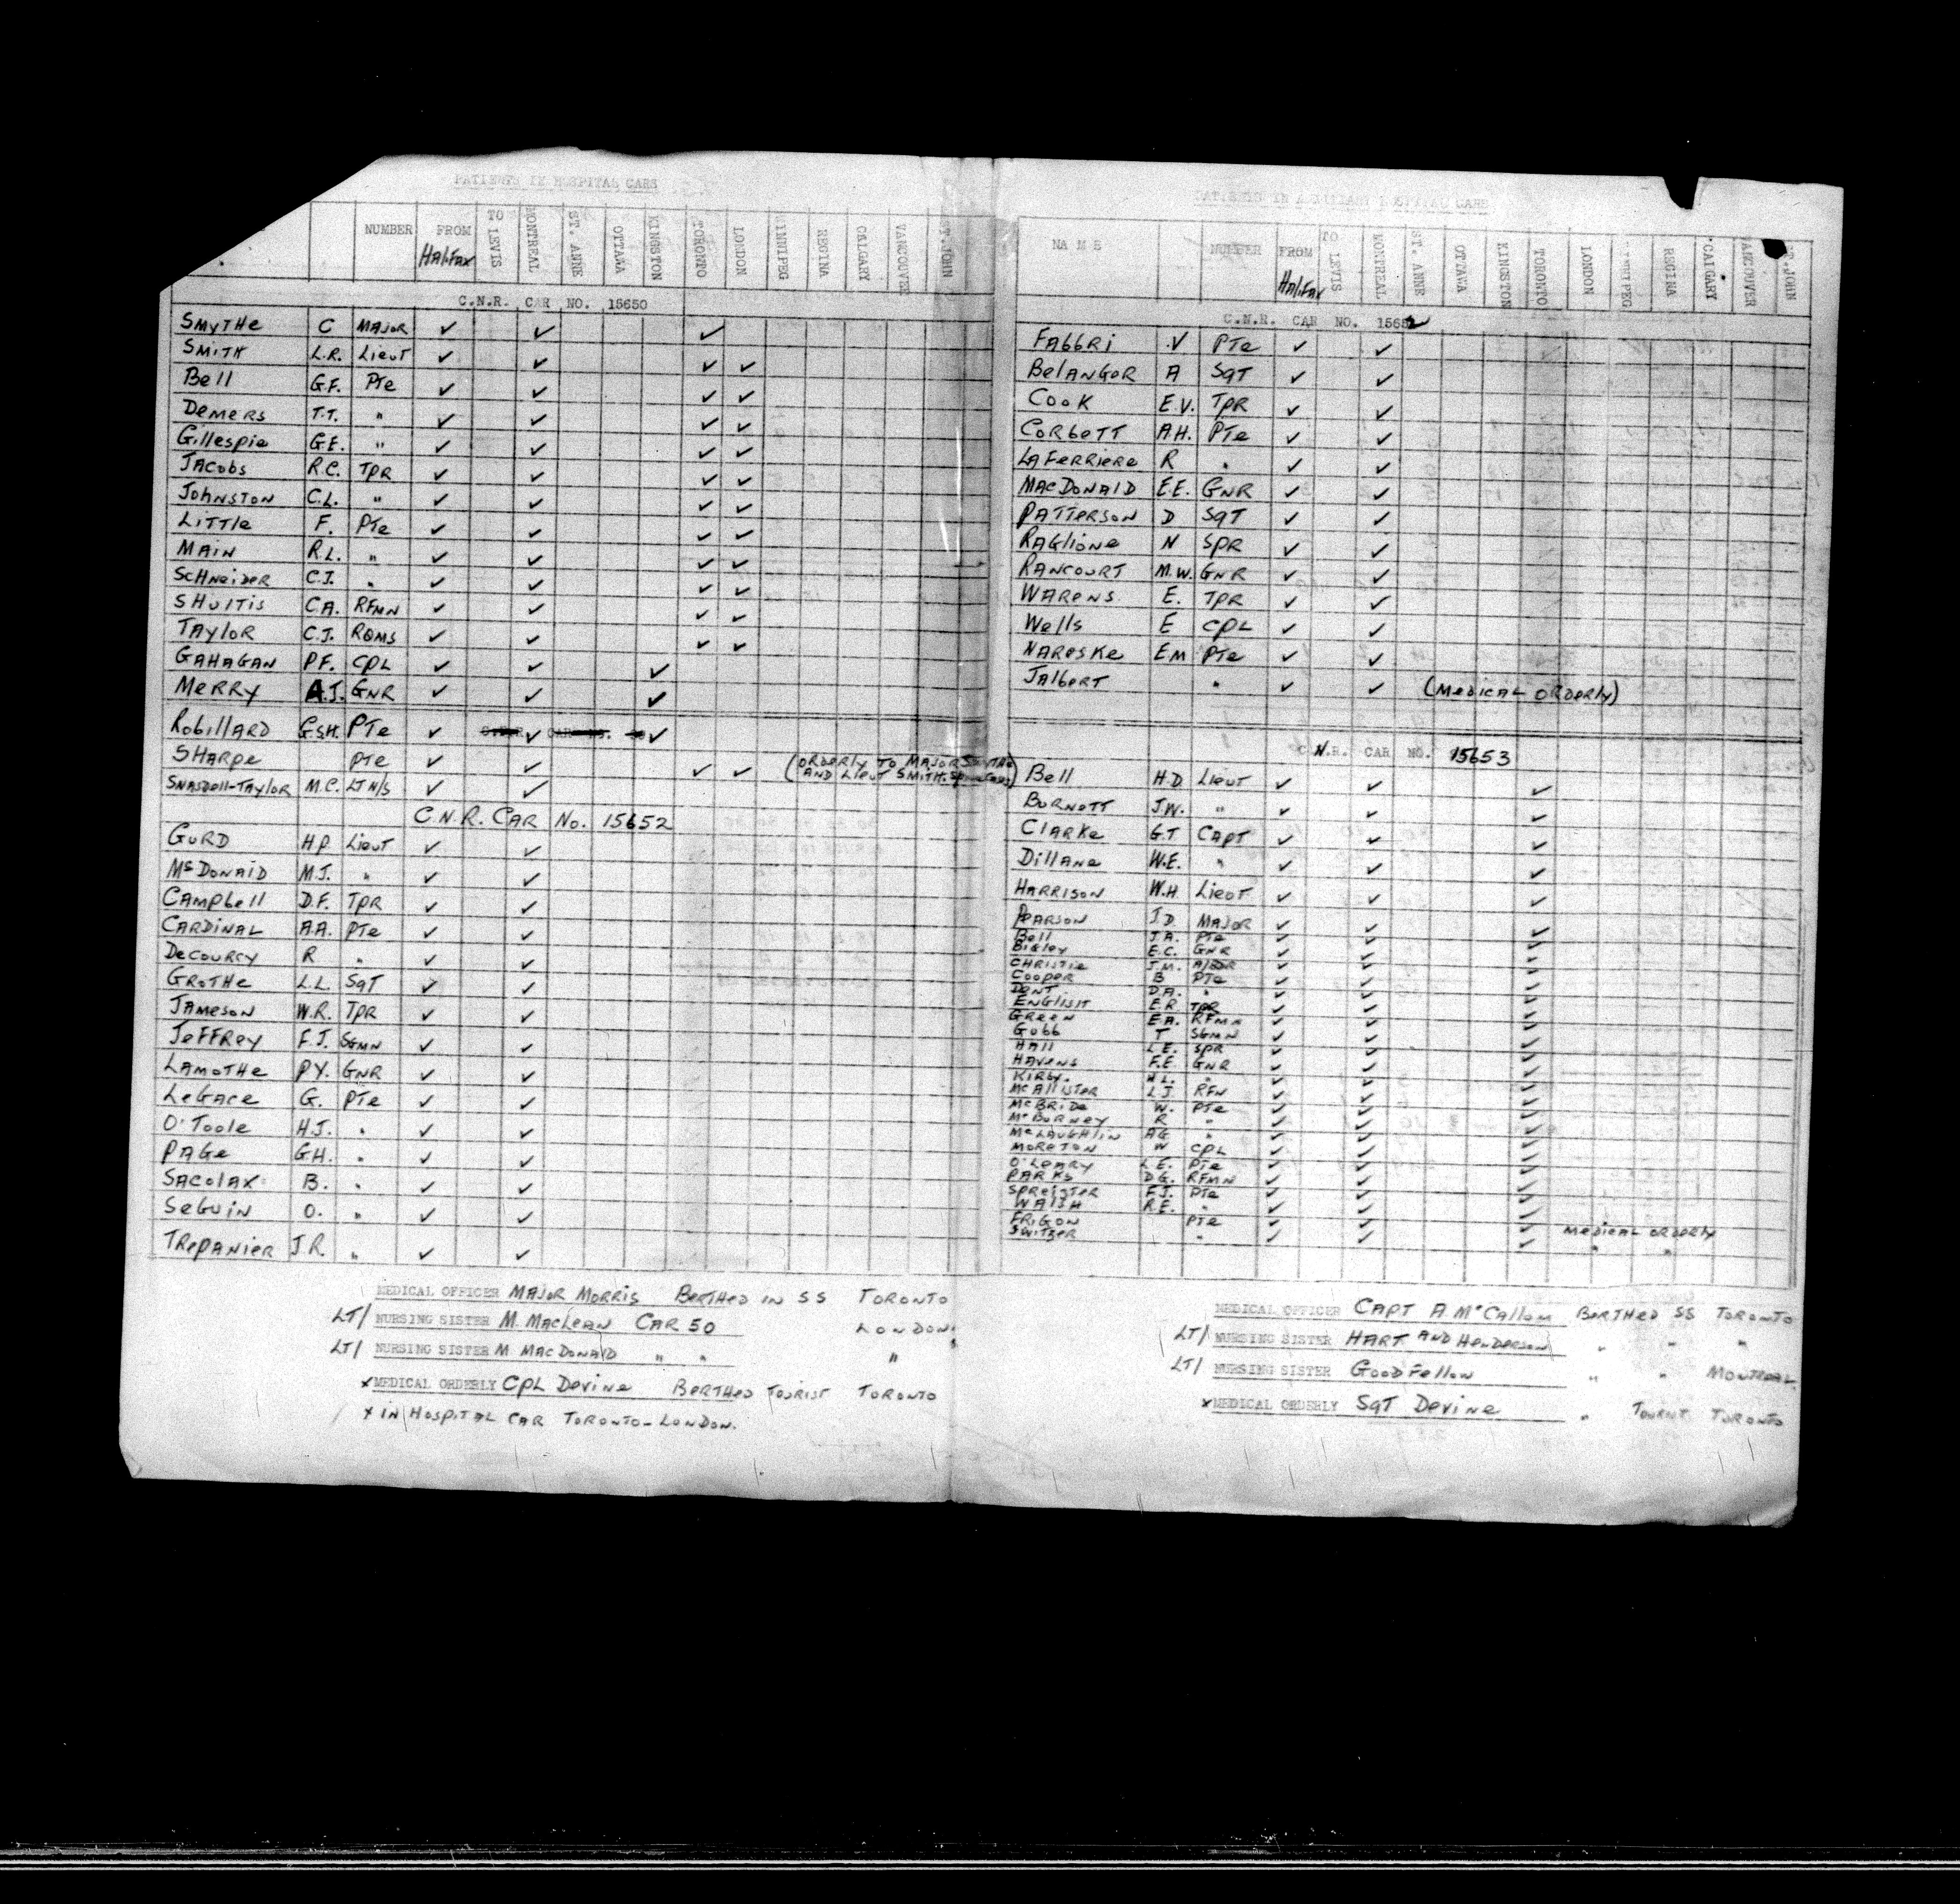 PATIENTS IN HOSPITAL CARS
NUMBER FROM TO LEVIS MONTREAL ST. ANNE OTTAWA KINGSTON TORONTO LONDON WINNIPEG REGINA CALGARY VANCOUVER ST. JOHN
HALIFAX
C.N.R. CAR NO. 15650
SMYTHE C MAJOR ✓ ✓ ✓
SMITH L.R. Lieut ✓ ✓ ✓ ✓
Bell G.F. PTe ✓ ✓ ✓ ✓
DeMeRS T.T. " ✓ ✓ ✓ ✓
Gillespie G.E. " ✓ ✓ ✓ ✓
JACobs R.C. TPR ✓ ✓ ✓ ✓
JoHNSTON C.L. " ✓ ✓ ✓ ✓
LiTTle F. PTe ✓ ✓ ✓ ✓
MAIN R.L. " ✓ ✓ ✓ ✓
ScHNeiDeR C.J. " ✓ ✓ ✓ ✓
SHulTis C.A. RFMN ✓ ✓ ✓ ✓
TAYloR C.J. RQMS ✓ ✓ ✓ ✓
GAHAGAN P.F. CPL ✓ ✓ ✓
MeRRY A.J. GNR ✓ ✓ ✓
RobillARD G.S.H. PTe ✓ ✓ ✓
SHARpe PTe ✓ ✓ ✓ ✓ (ORDeRly TO MAJOR SMYTHe
AND Lieut SMITH.
SNASDell-TAYloR M.C. LT N/S ✓ ✓
C.N.R. CAR No. 15652
GURD H.P. Lieut ✓ ✓
McDONAlD M.J. " ✓ ✓
CAMPbell D.F. TPR ✓ ✓
CARDINAL A.A. PTe ✓ ✓
DeCouRCY R " ✓ ✓
GRoTHe L.L. SgT ✓ ✓
JAMeSON W.R. TPR ✓ ✓
JeFFRey F.J. SGMN ✓ ✓
LAMoTHe P.Y. GNR ✓ ✓
LeGAce G. PTe ✓ ✓
O'Toole H.J. " ✓ ✓
PAGe G.H. " ✓ ✓
SACOlAX B. " ✓ ✓
SeGuIN O. " ✓ ✓
TRePANIeR J.R. " ✓ ✓
MEDICAL OFFICER MAJOR MORRIS BeRTHeD IN SS TORONTO
LT/ NURSING SISTER M. MACLeAN CAR 50 LONDON
LT/ NURSING SISTER M MACDONAlD " " "
x MEDICAL ORDERLY CPL DeviNe BeRTHeD TOURIST TORONTO
x IN HOSPITAL CAR TORONTO-LONDON.
PATIENTS IN AUXILIARY HOSPITAL CARS
NAME NUMBER FROM TO LEVIS MONTREAL ST. ANNE OTTAWA KINGSTON TORONTO LONDON WINNIPEG REGINA CALGARY VANCOUVER ST. JOHN
HALIFAX
C.N.R. CAR NO. 15652
FAbbRi V PTe ✓ ✓
BelANGeR A SgT ✓ ✓
COOK E.V. TPR ✓ ✓
CORbeTT A.H. PTe ✓ ✓
LAFeRRieRe R " ✓ ✓
MACDONAlD E.E. GNR ✓ ✓
PATTeRSON D SgT ✓ ✓
RAGliONe N SPR ✓ ✓
RANCOURT M.W. GNR ✓ ✓
WAReNS E. TPR ✓ ✓
Wells E CPL ✓ ✓
NAReSKe E.M PTe ✓ ✓
JAlbeRT " ✓ ✓ (MeDICAL ORDeRly)
C.N.R. CAR NO. 15653
Bell H.D Lieut ✓ ✓ ✓
BURNeTT J.W. " ✓ ✓ ✓
ClARKe G.T CAPT ✓ ✓ ✓
DillANe W.E. " ✓ ✓ ✓
HARRISON W.H Lieut ✓ ✓ ✓
PeARSON J.D MAJOR ✓ ✓ ✓
Bell J.A. PTe ✓ ✓ ✓
BIGley E.C. GNR ✓ ✓ ✓
CHRISTie J.M. ✓ ✓ ✓
CooPeR B PTe ✓ ✓ ✓
DeNT D.A. " ✓ ✓ ✓
ENGlISH E.R TPR ✓ ✓ ✓
GReeN E.A. RFMN ✓ ✓ ✓
Gubb T SGMN ✓ ✓ ✓
HAll L.E. SPR ✓ ✓ ✓
HAVeNS F.E GNR ✓ ✓ ✓
KIRby. H.L. " ✓ ✓ ✓
McAllISTeR L.J RFN ✓ ✓ ✓
McBRiDe W. PTe ✓ ✓ ✓
McBURNey R " ✓ ✓ ✓
McLAUGHlIN AG " ✓ ✓ ✓
MOReTON W CPL ✓ ✓ ✓
O'LeARY L.E. PTe ✓ ✓ ✓
PARKS D.G. RFMN ✓ ✓ ✓
SPReITeR F.J. PTe ✓ ✓ ✓
WAlSH R.E. " ✓ ✓ ✓
FRIGON PTe ✓ ✓ ✓ MeDICAL ORDeRly
SWITZeR " ✓ ✓ ✓ " "
MEDICAL OFFICER CAPT A McCallum BeRTHeD SS TORONTO
LT/ NURSING SISTER HART AND HeNDeRSON " " "
LT/ NURSING SISTER GooDFellow " " MONTReAL
x MEDICAL ORDERLY SgT DeviNe " TOURIST TORONTO